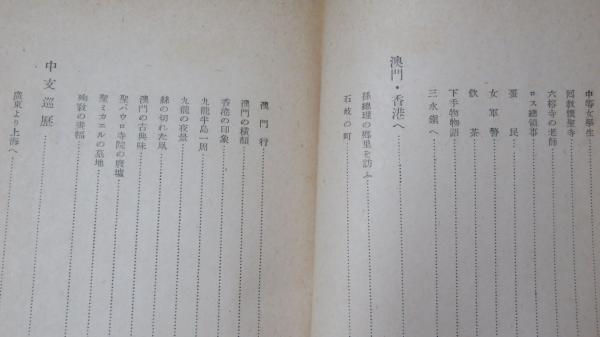 中等女學生
囘敎懷聖寺
六榕寺の老師
ロス總領事
蜑民
女軍警
飮茶
下手物物語
三水鎭へ
澳門・香港へ
孫總理の鄕里を訪ふ
石岐の町
澳門行
澳門の橫顏
香港の印象
九龍半島一周
九龍の夜景
絲の切れた凧
澳門の古典味
聖パウロ寺院の廢墟
聖ミカエルの墓地
殉敎の壺幅
中支巡歷
廣東より上海へ